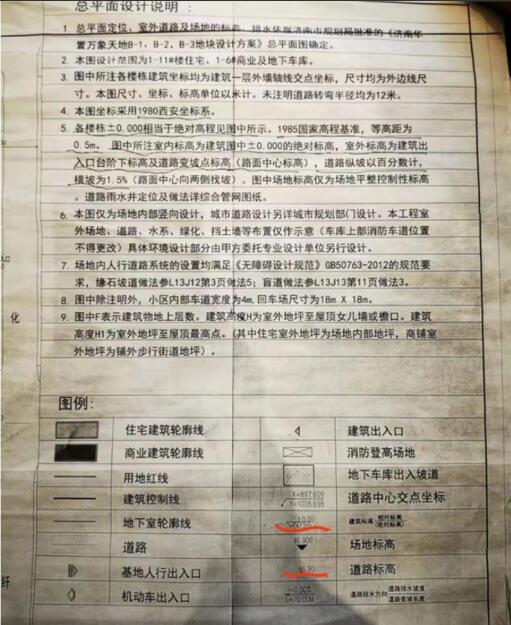 总平面设计说明：
1. 总平面定位、室外道路及场地的标高、排水依据济南市规划局批准的《济南华
置万象天地B-1、B-2、B-3地块设计方案》总平面图确定。
2. 本图设计范围为1-11#楼住宅、1-6#商业及地下车库。
3. 图中所注各楼栋建筑坐标均为建筑一层外墙轴线交点坐标，尺寸均为外边线尺
寸。本图尺寸、坐标、标高单位以米计。未注明道路转弯半径均为12米。
4. 本图坐标采用1980西安坐标系。
5. 各楼栋±0.000相当于绝对高程见图中所示。1985国家高程基准，等高距为
0.5m。图中所注室内标高为建筑图中±0.000的绝对标高，室外标高为建筑出
入口台阶下标高及道路变坡点标高(路面中心标高)，道路纵坡以百分数计，
横坡为1.5%（路面中心向两侧找坡）。图中场地标高仅为场地平整控制性标高
。道路雨水井定位及做法详综合管网图纸。
6. 本图仅为场地内部竖向设计，城市道路设计另详城市规划部门设计。本工程室
外场地、道路、水系、绿化、挡土墙等布置仅作示意（车库上部消防车道位置
不得更改）具体环境设计部分由甲方委托专业设计单位另行设计。
7. 场地内人行道路系统的设置均满足《无障碍设计规范》GB50763-2012的规范要
求，缘石坡道做法参L13J12第3页做法5；盲道做法参L13J13第11页做法3。
8. 图中除注明外，小区内部车道宽度为4m,回车场尺寸为18m X 18m。
9. 图中F表示建筑物地上层数。建筑高度H为室外地坪至屋顶女儿墙或檐口。建筑
高度H1为室外地坪至屋顶最高点。(其中住宅室外地坪为场地内部地坪，商铺室
外地坪为铺外步行街道地坪）。
入口
化
纤
图例：
住宅建筑轮廓线 建筑出入口
商业建筑轮廓线 消防登高场地
用地红线 地下车库出入坡道
建筑控制线 X=897.609 Y=1008.698 道路中心交点坐标
地下室轮廓线 ±0.00 建筑标高(相对标高)(绝对标高)
道路 46.900 场地标高
基地人行出入口 46.90 道路标高
机动车出入口 i=0.50% L=70.00M 道路排水方向 道路排水坡度 道路变坡长度